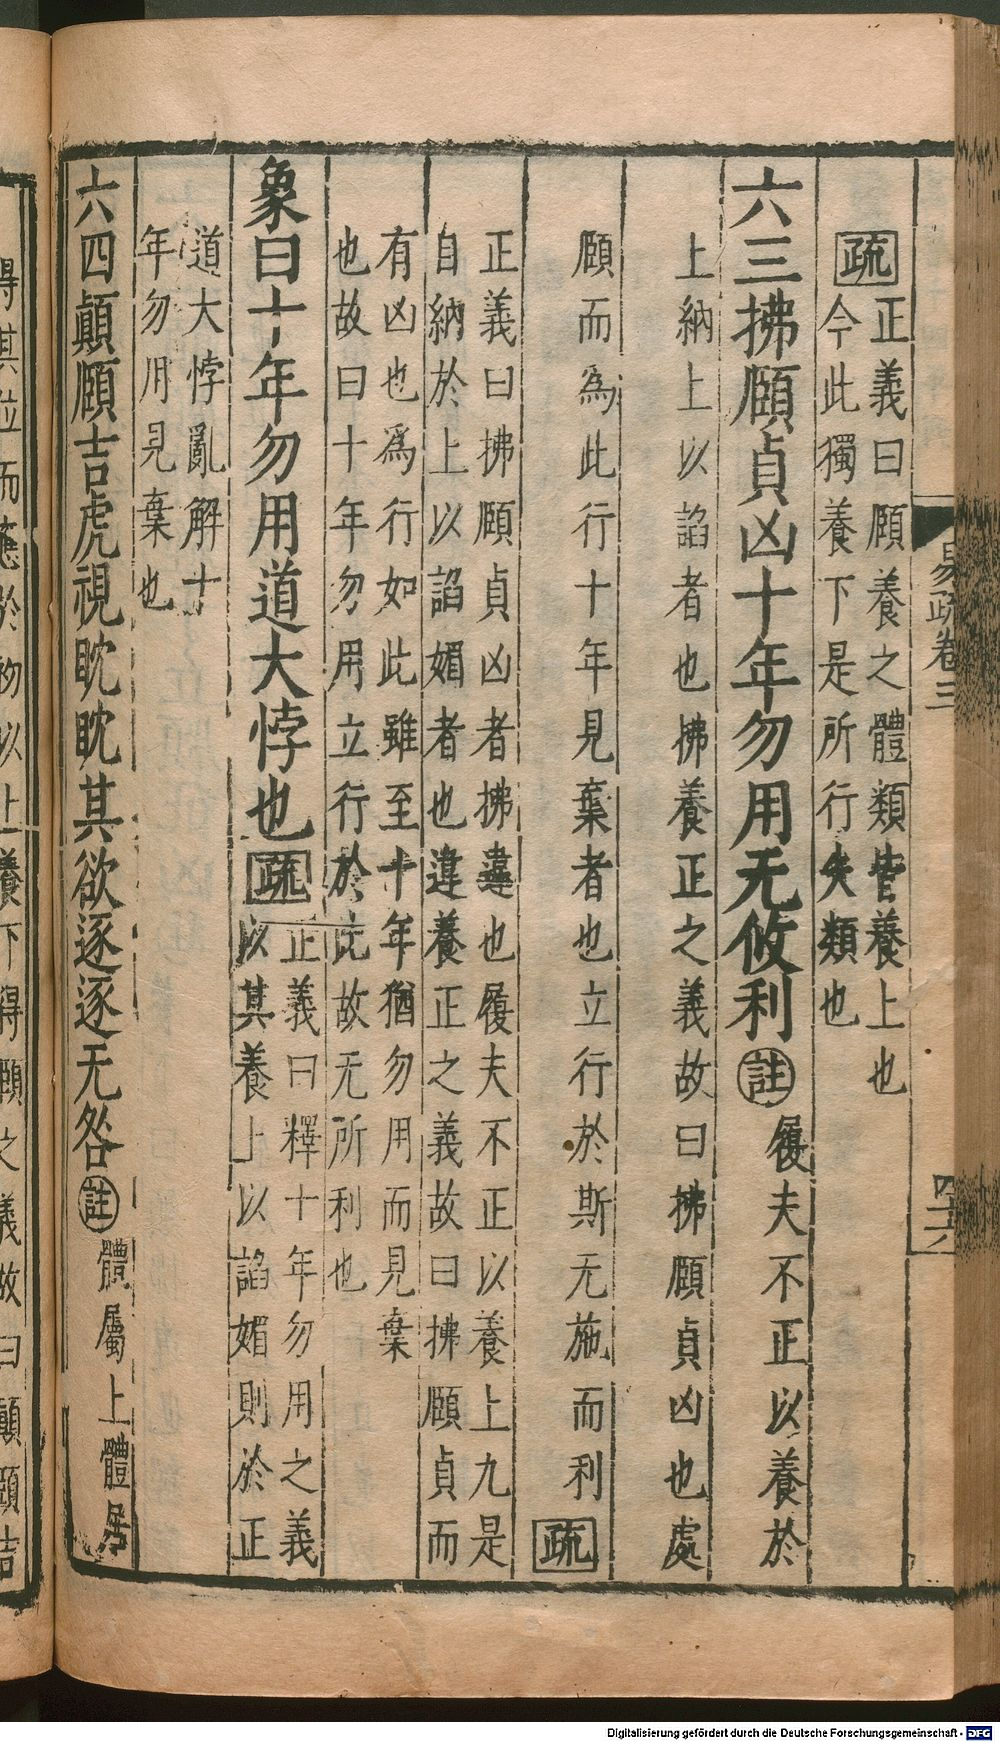 疏
正義曰頤養之體類皆養上也
今此獨養下是所行失類也
六三拂頤貞凶十年勿用无攸利註
履夫不正以養於
上納上以諂者也拂養正之義故曰拂頤貞凶也處
頤而為此行十年見棄者也立行於斯无施而利疏
正義曰拂頤貞凶者拂違也履夫不正以養上九是
自納於上以諂媚者也違養正之義故曰拂頤貞而
有凶也為行如此雖至十年猶勿用而見棄
也故曰十年勿用立行於此故无所利也
象曰十年勿用道大悖也疏
正義曰釋十年勿用之義
以其養上以諂媚則於正
道大悖亂解十
年勿用見棄也
六四顚頤吉虎視眈眈其欲逐逐无咎註
體屬上體居
易疏卷三
得其位而應於初以上養下得頤之義故曰顚頤吉
Digitalisierung gefördert durch die Deutsche Forschungsgemeinschaft - DFG